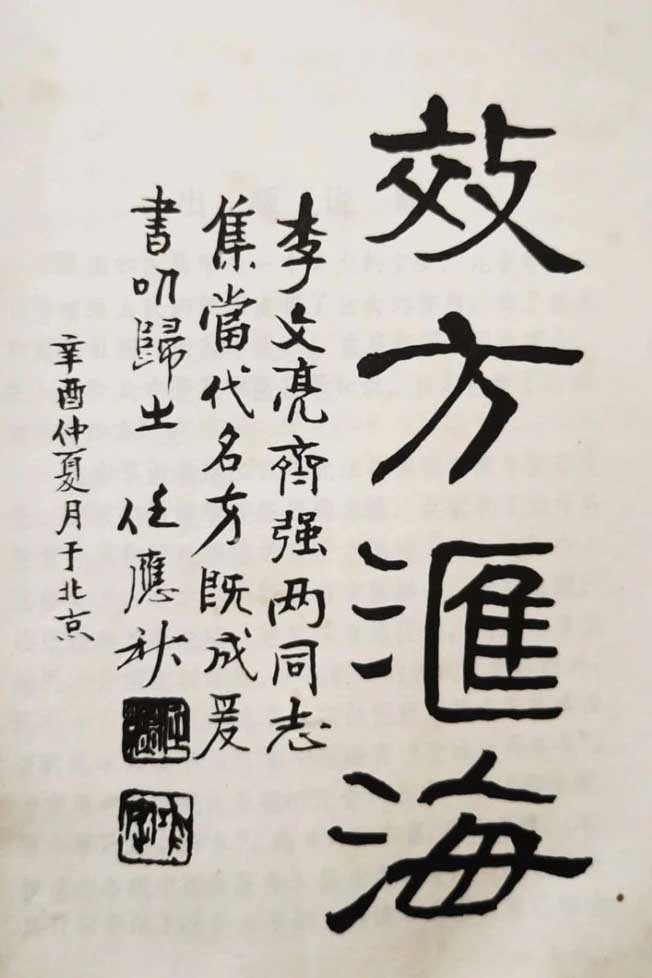 效方滙海
李文亮齊强两同志
集當代名方既成爰
書叨歸之 任應秋
辛酉仲夏月于北京